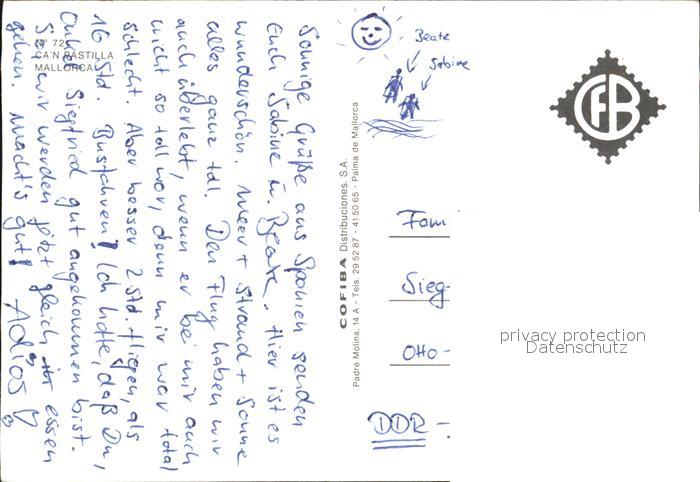 Sonnige Grüße aus Spanien senden
Euch Sabine u. Beate. Hier ist es
wunderschön. Meer + Strand + Sonne
alles ganz toll. Den Flug haben wir
auch überlebt, wenn er bei mir auch
nicht so toll war, denn mir war total
schlecht. Aber besser 2 Std. fliegen, als
16 Std. Busfahren! Ich hoffe, daß Du,
Onkel Siegfried gut angekommen bist.
So, wir werden jetzt gleich essen
gehen. Macht's gut! Adios
N° 72
CA'N PASTILLA
MALLORCA
COFIBA Distribuciones, S.A.
Padre Molina, 14 A - Tels. 29 52 87 - 41 50 65 - Palma de Mallorca
Beate
Sabine
CFB
Fam
Sieg-
Otto-
DDR -
privacy protection
Datenschutz